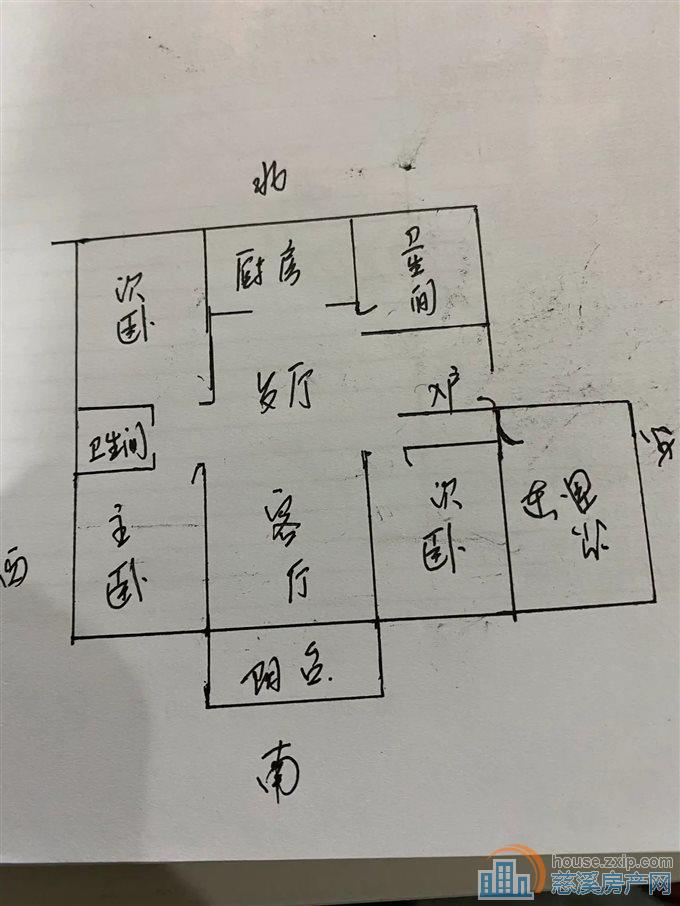 北
次卧
厨房
卫生间
歺厅
入户
卫生间
主卧
客厅
次卧
西
阳台
南
house.zxip.com
慈溪房产网